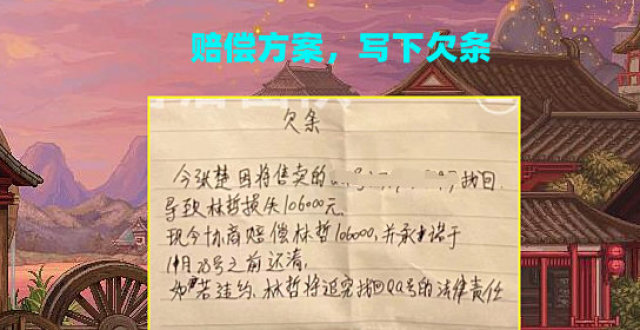 赔偿方案，写下欠条
欠条
今张楚因将售卖的 找回
导致林哲损失106000元
现今协商赔偿林哲106000,并承诺于
11月28号之前还清,
如若违约,林哲将追究找回QQ号的法律责任